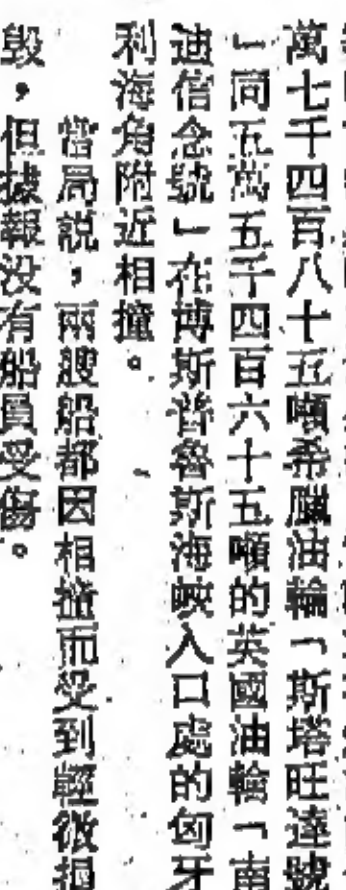 萬七千四百八十五噸希臘油輪「斯塔旺達號
」同五萬五千四百六十五噸的英國油輪「南
迪信念號」在博斯普魯斯海峽入口處的匈牙
利海角附近相撞。
當局説，兩艘船都因相撞而受到輕微損
毀，但據報没有船員受傷。